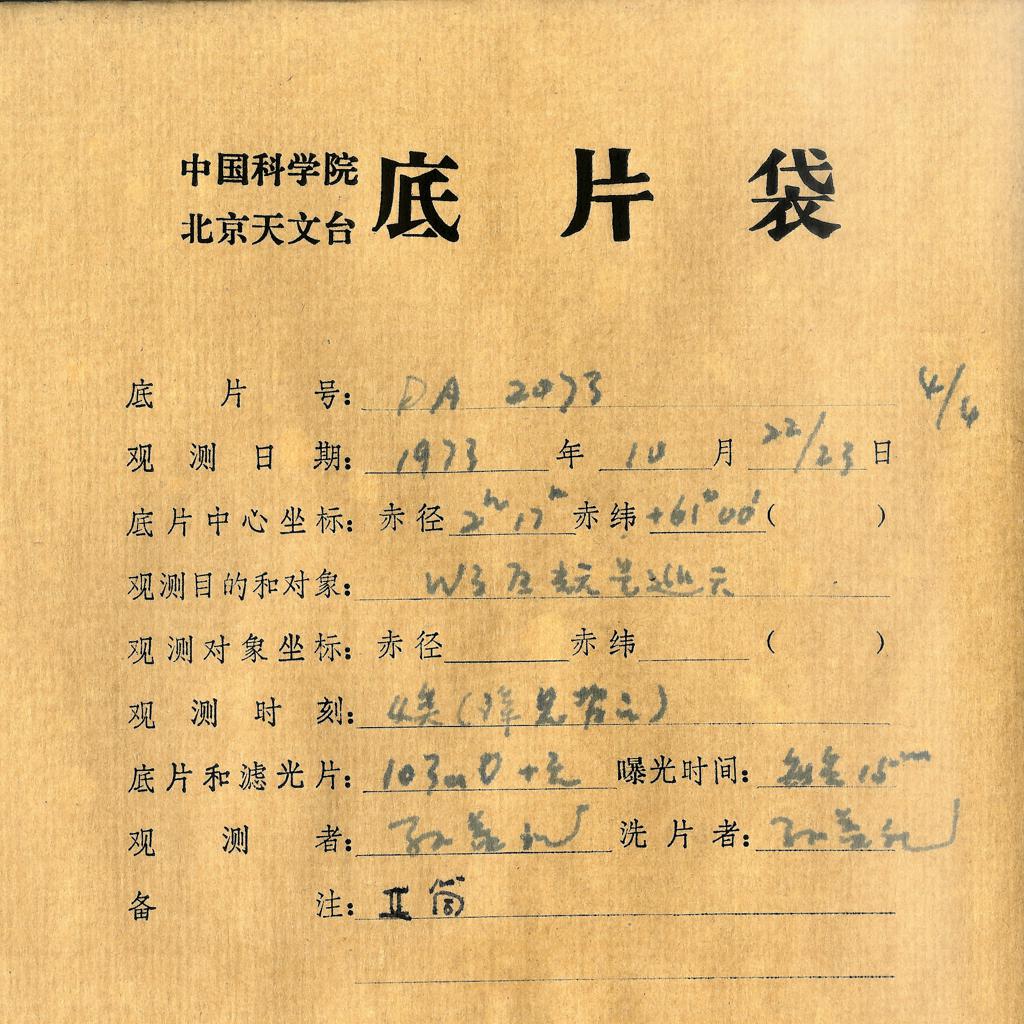 中国科学院
北京天文台
底片袋
4/4
底片号: DA 2073
观测日期: 1973 年 10 月 22/23 日
底片中心坐标: 赤径 2ʰ 17ᵐ 赤纬 +61°00′ ( )
观测目的和对象: W3 巡天
观测对象坐标: 赤径 赤纬 ( )
观测时刻: 4类 (详见
底片和滤光片: 103aO +无 曝光时间: 15ᵐ
观测者: 孙
洗片者: 孙
备注: II 筒